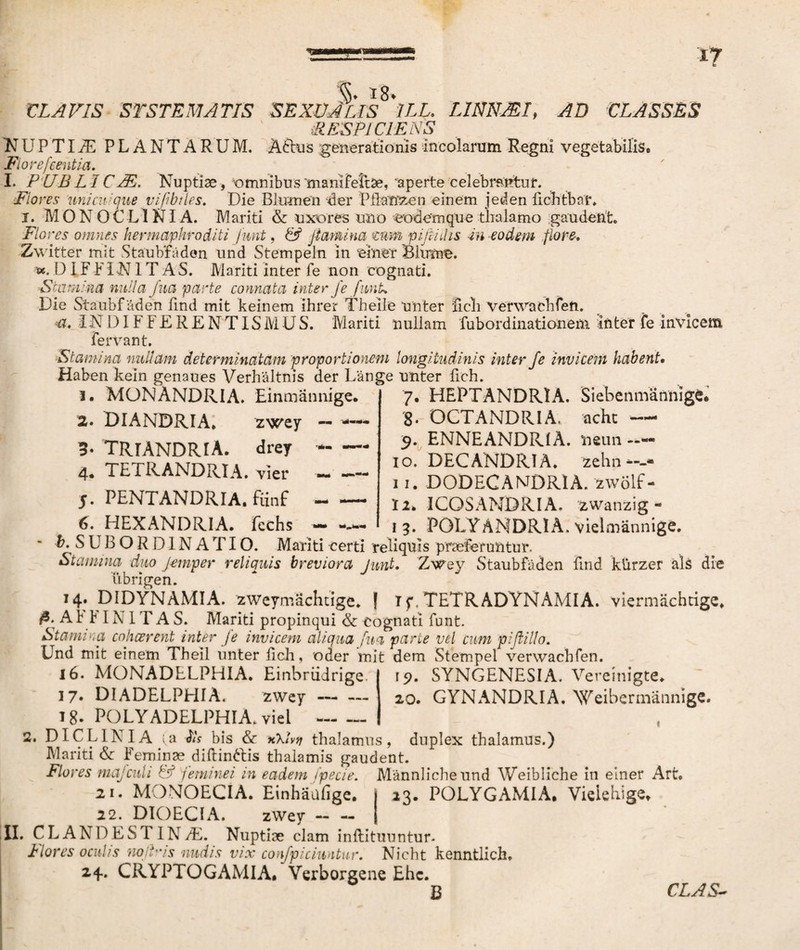 17
§. 18.
CLAVIS SYSTEMATIS SEXUALIS ILL. LINNÆI, AD CLASSES
RESPICIENS
NUPTIÆ PLANTARUM. Actus generationis incolarum Regni vegetabilis.
Floreſcentia.
I. PUBLICÆ. Nuptiæ, omnibus manifeſtæ, aperte celebrantur.
Flores unicuique viſibiles. Die Blumen der Pflanzen einem jeden ſichtbar.
1. MONOCLINIA. Mariti & uxores uno eodemque thalamo gaudent.
Flores omnes hermaphroditi ſunt, & ſtamina cum piſtillis in eodem flore.
Zwitter mit Staubfäden und Stempeln in einer Blume.
α. DIFFINITAS. Mariti inter ſe non cognati.
Stamina nulla ſua parte connata inter ſe ſunt.
Die Staubfäden ſind mit keinem ihrer Theile unter ſich verwachſen.
a. INDIFFERENTISMUS. Mariti nullam ſubordinationem inter ſe invicem
ſervant.
Stamina nullam determinatam proportionem longitudinis inter ſe invicem habent.
Haben kein genaues Verhältnis der Länge unter ſich.
1. MONANDRIA. Einmännige.
2. DIANDRIA. zwey — —
3. TRIANDRIA. drey — —
4. TETRANDRIA. vier — —
5. PENTANDRIA. fünf — —
6. HEXANDRIA. ſechs — —
7. HEPTANDRIA. Siebenmännige.
8. OCTANDRIA. acht —
9. ENNEANDRIA. neun —
10. DECANDRIA. zehn —
11. DODECANDRIA. zwölf-
12. ICOSANDRIA. zwanzig-
13. POLYANDRIA. vielmännige.
b. SUBORDINATIO. Mariti certi reliquis præferuntur.
Stamina duo ſemper reliquis breviora ſunt. Zwey Staubfäden ſind kürzer als die
übrigen.
14. DIDYNAMIA. zweymächtige. | 15. TETRADYNAMIA. viermächtige.
β. AFFINITAS. Mariti propinqui & cognati ſunt.
Stamina cohærent inter ſe invicem aliqua ſua parte vel cum piſtillo.
Und mit einem Theil unter ſich, oder mit dem Stempel verwachſen.
16. MONADELPHIA. Einbrüdrige.
17. DIADELPHIA. zwey — —
18. POLYADELPHIA. viel — —
19. SYNGENESIA. Vereinigte.
20. GYNANDRIA. Weibermännige.
2. DICLINIA (a δὶς bis & κλίνη thalamus, duplex thalamus.)
Mariti & Feminæ diſtinctis thalamis gaudent.
Flores maſculi & feminei in eadem ſpecie. Männliche und Weibliche in einer Art.
21. MONOECIA. Einhäuſige.
22. DIOECIA. zwey — —
23. POLYGAMIA. Vielehige.
II. CLANDESTINÆ. Nuptiæ clam inſtituuntur.
Flores oculis noſtris nudis vix conſpiciuntur. Nicht kenntlich.
24. CRYPTOGAMIA. Verborgene Ehe.
B
CLAS-